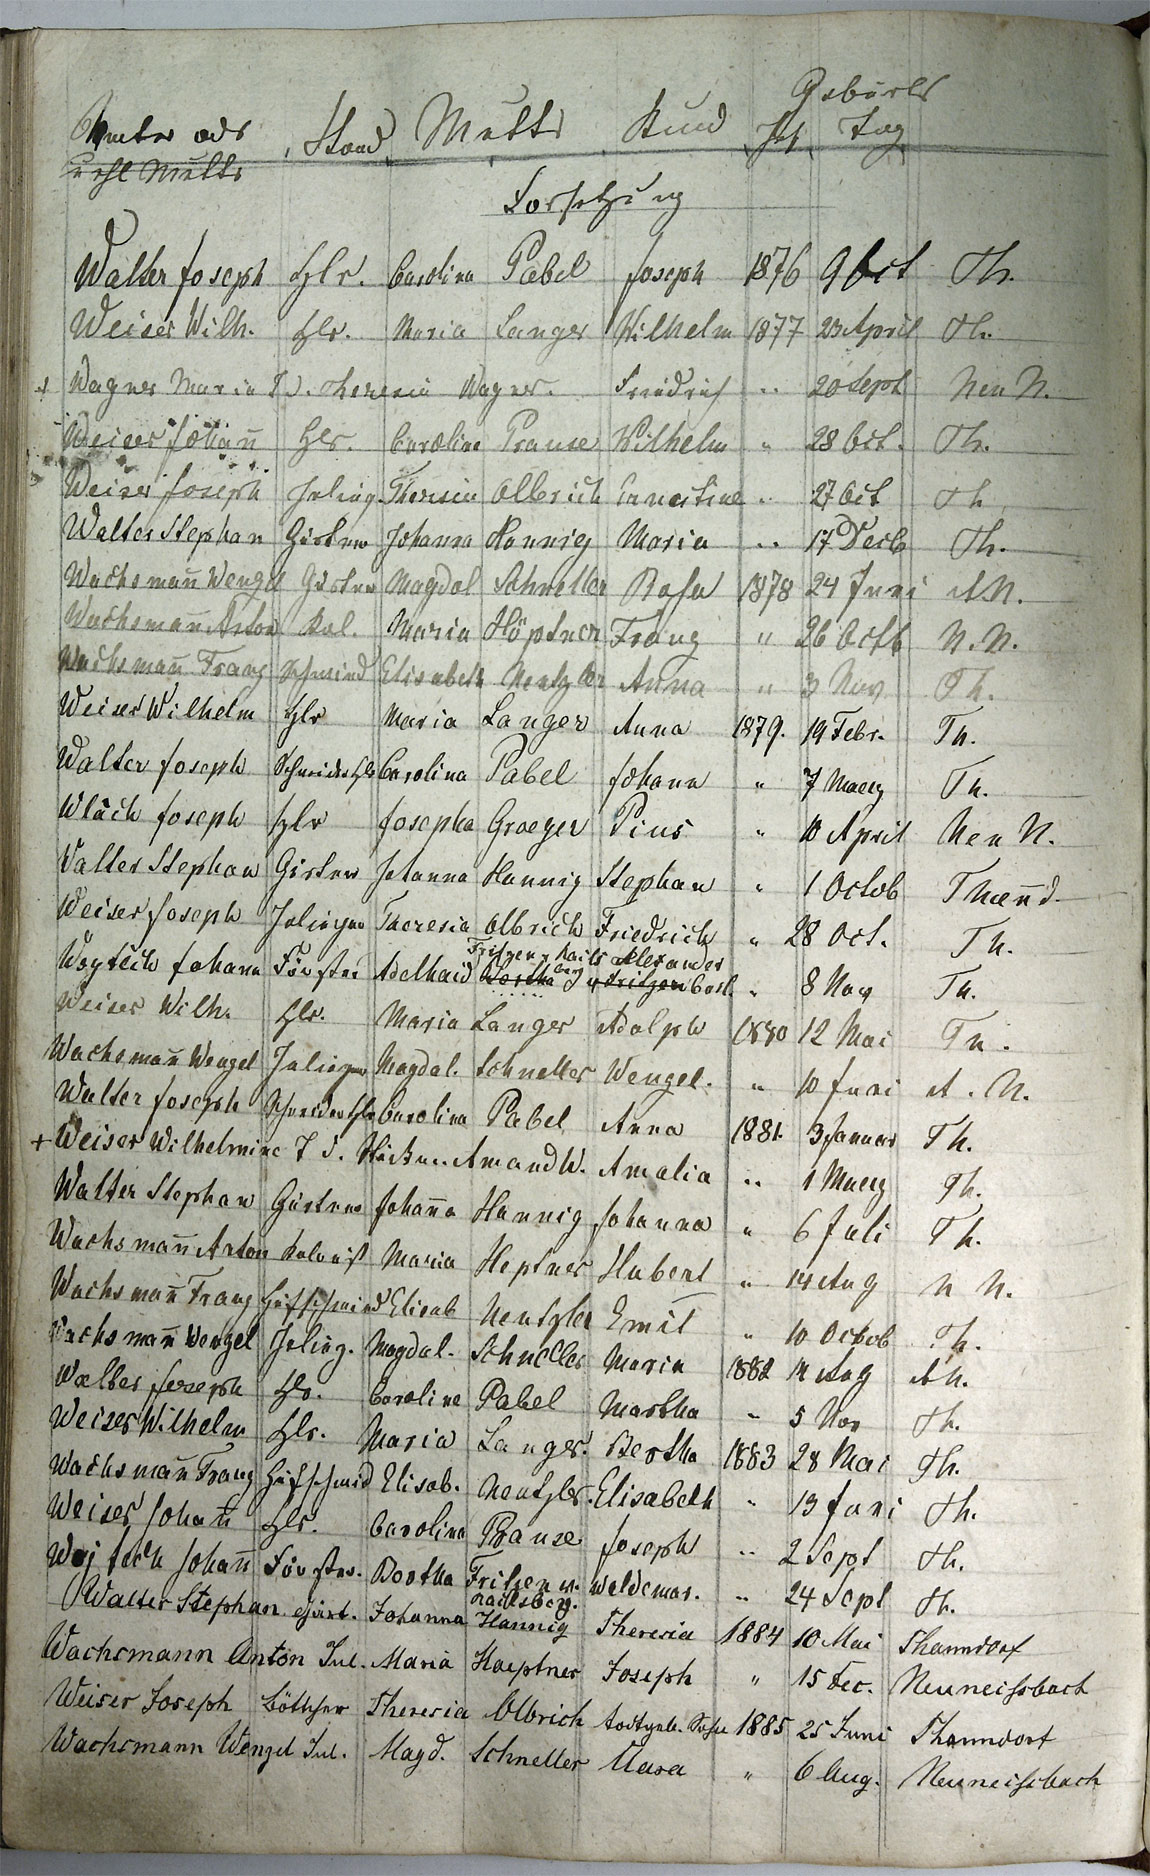 Geburts
Vater oder Stand Mutter Kind Jhr Tag
unehl Mutter
Fortsetzung
Walter Joseph Hlr. Carolina Pabel Joseph 1876 9 Oct Th.
Weiser Wilh. Hlr. Maria Langer Wilhelm 1877 23 April Th.
+ Wagner Maria T. d. Theresia Wagner. Friedrich " 20 Sept Neu N.
Weiser Johan̄ Hlr. Caroline Prause Wilhelm " 28 Oct. Th.
Weiser Joseph Inlieg. Theresia Olbrich Ernestine " 27 Oct Th
Walter Stephan Gärtner Johanna Hannig Maria " 17 Decb Th.
Wachsman̄ Wenzel Gärtner Magdal Schneller Rosa 1878 24 Juni A.N.
Wachsman̄ Anton Kol. Maria Höptner Franz " 26 Octb N. N.
Wachsman̄ Franz Schmied Elisabeth Nentzler Anna " 3 Nov Th.
Weiser Wilhelm Hlr Maria Langer Anna 1879. 19 Febr. Th.
Walter Joseph Schneider Hlr Carolina Pabel Johann " 7 Maerz Th.
Wlach Joseph Hlr Josepha Groeger Pius " 10 April Neu N.
Walter Stephan Gärtner Johanna Hannig Stephan " 1 Octob Thannd.
Weiser Joseph Inlieger Theresia Olbrich Friedrich " 28 Oct. Th.
Fritzen v. Alexander
Woyteich Johann Förster Adelhaid Bertha Carl. " 8 Nov Th.
Weiser Wilh. Hlr. Maria Langer Adolph 1880 12 Mai Th.
Wachsman̄ Wenzel Inlieger Magdal. Schneller Wenzel. " 10 Juni A. N.
Walter Joseph Schneider Hlr Carolina Pabel Anna 1881. 3 Januar Th.
+ Weiser Wilhelmine T. d. Amand W. Amalia " 1 Maerz Th.
Walter Stephan Gärtner Johan̄a Hannig Johanna " 6 Juli Th.
Wachsman̄ Anton Kolonist Maria Heptner Hubert " 14 Aug N N.
Wachsman̄ Franz Hufschmied Elisab Nentzler Emil " 10 Octob Th.
Wachsman̄ Wenzel Inlieg. Magdal. Schneller Maria 1882 14 Aug AN.
Walter Joseph Hlr. Caroline Pabel Martha " 5 Nov Th.
Weiser Wilhelm Hlr. Maria Langer. Bertha 1883 28 Mai Th.
Wachsman̄ Franz Hufschmied Elisab. Nentzler. Elisabeth " 13 Juni Th.
Weiser Johan̄ Hlr. Carolina Prause Joseph " 2 Sept Th.
Woiteck Johan̄ Förster. Bertha Fritzen v. Waldemar. " 24 Sept Th.
Walter Stephan Gärt. Johanna Hannig Theresia 1884 10 Mai Thanndorf
Wachsmann Anton Inl. Maria Haeptner Joseph " 15 Dec. Neuneissbach
Weiser Joseph Böttcher Theresia Olbrich todtgeb. Sohn 1885 25 Juni Thanndorf
Wachsmann Wenzel Inl. Magd. Schneller Clara " 6 Aug. Neuneissbach